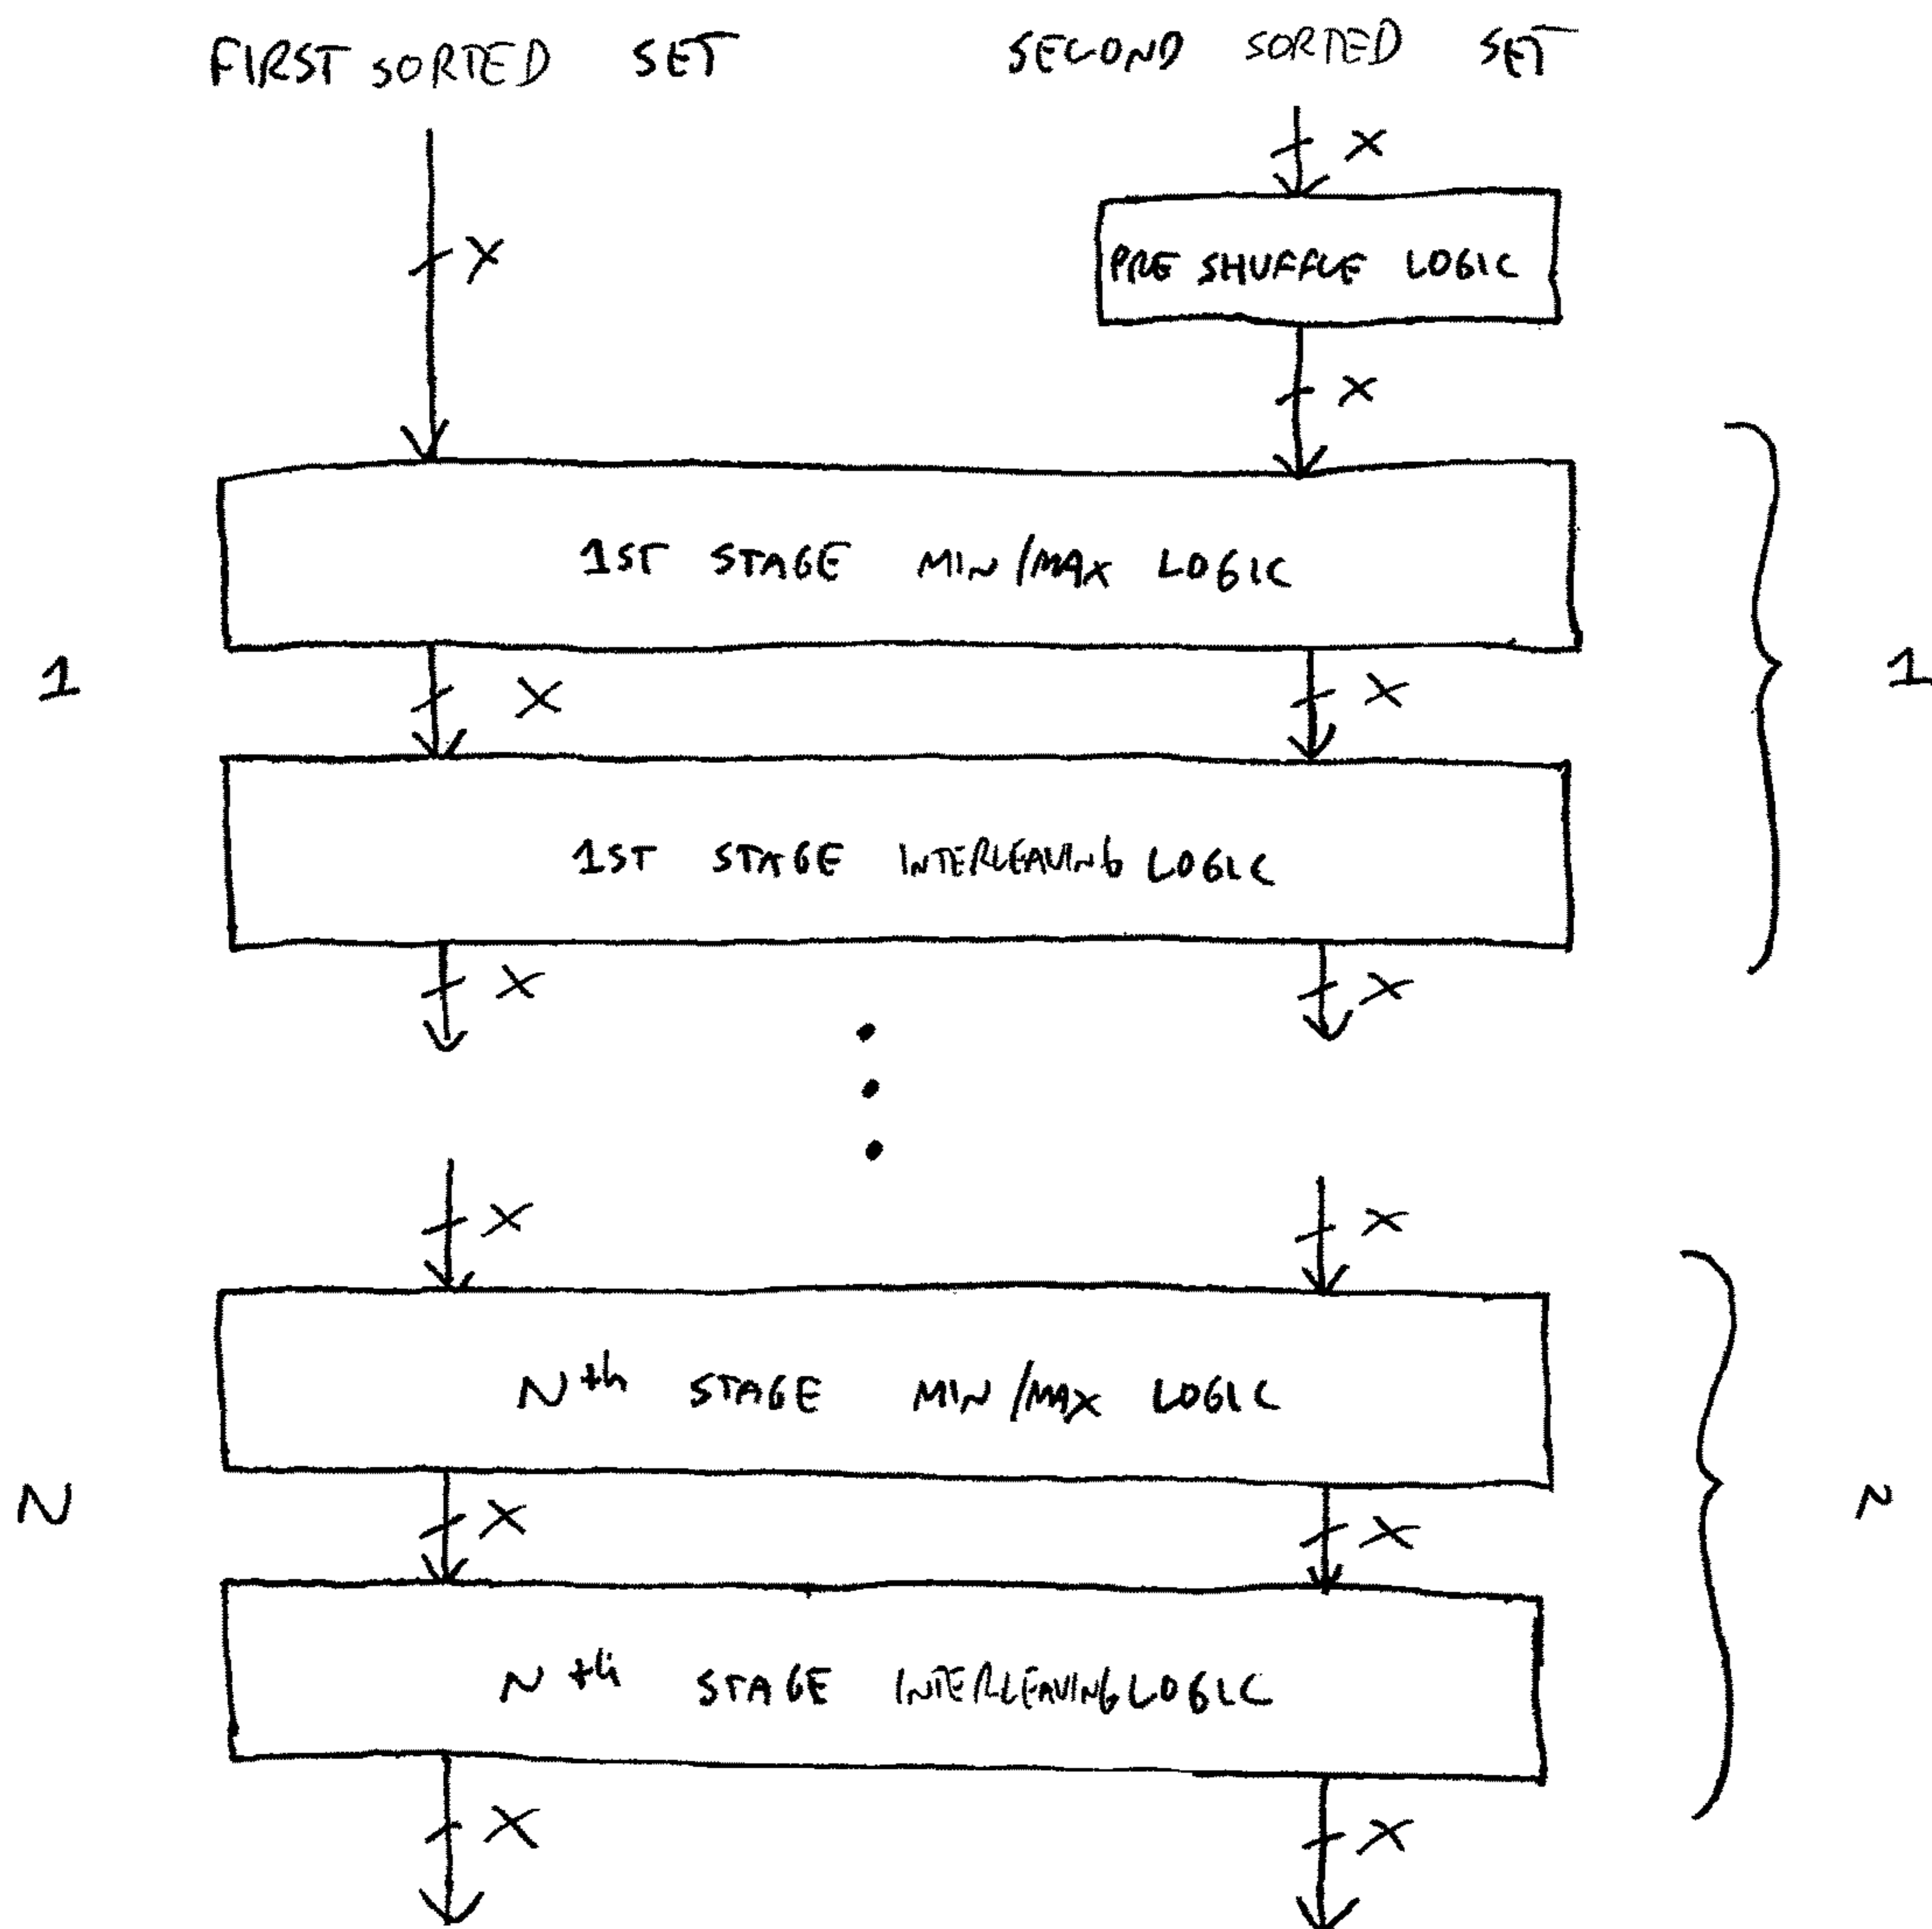 FIRST SORTED SET SECOND SORTED SET
X
PRE SHUFFLE LOGIC
X
X
1ST STAGE MIN/MAX LOGIC
1 X X 1
1ST STAGE INTERLEAVING LOGIC
X X
X X
Nth STAGE MIN/MAX LOGIC
N X X N
Nth STAGE INTERLEAVING LOGIC
X X